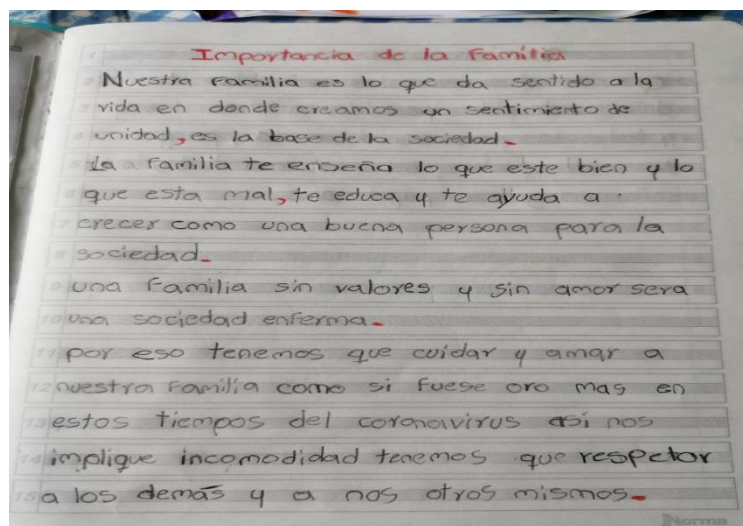 Importancia de la Familia
Nuestra familia es lo que da sentido a la
vida en donde creamos un sentimiento de
unidad, es la base de la sociedad.
La familia te enseña lo que este bien y lo
que esta mal, te educa y te ayuda a
crecer como una buena persona para la
sociedad.
una familia sin valores y sin amor sera
una sociedad enferma.
por eso tenemos que cuidar y amar a
nuestra familia como si fuese oro mas en
estos tiempos del coronavirus asi nos
implique incomodidad tenemos que respetar
a los demás y a nos otros mismos.
Norma